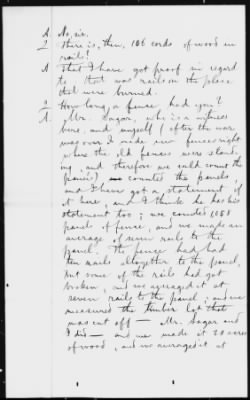 A No, sir.
Q There is, then, 106 cords of wood in
rails?
A That I have got proof in regard
to that was rails on the place
that were burned.
Q How long a fence had you?
A. Mr. Sagar, who is a witness
here, and myself (after the war
was over I made new fences right
where the old fences were stand-
ing, and therefore we could count the
panels) counted the panels,
and I have got a statement of
it here, and I think he has his
statement too; we counted 1058
panels of fence, and we made an
average of seven rails to the
panel. The fence had had
ten rails altogether to the panel,
but some of the rails had got
broken, and we averaged it at
seven rails to the panel; and we
measured the timber lot that
was cut off — Mr. Sagar and
I did — and we made it 30 acres
of wood, and we averaged it at